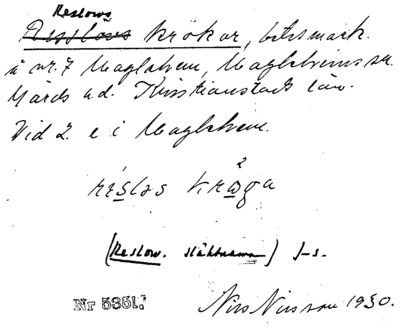 Reslows
Resslows krökar, betesmark
å nr. 7 Maglehem, Maglehems sn.
Gärds hd. Kristianstads län.
Vid 2. e i Maglehem.
2
réslɔs krɔga
(Reslow. släktnamn) J-s.
Nr 5351. Nils Nilsson 1930.